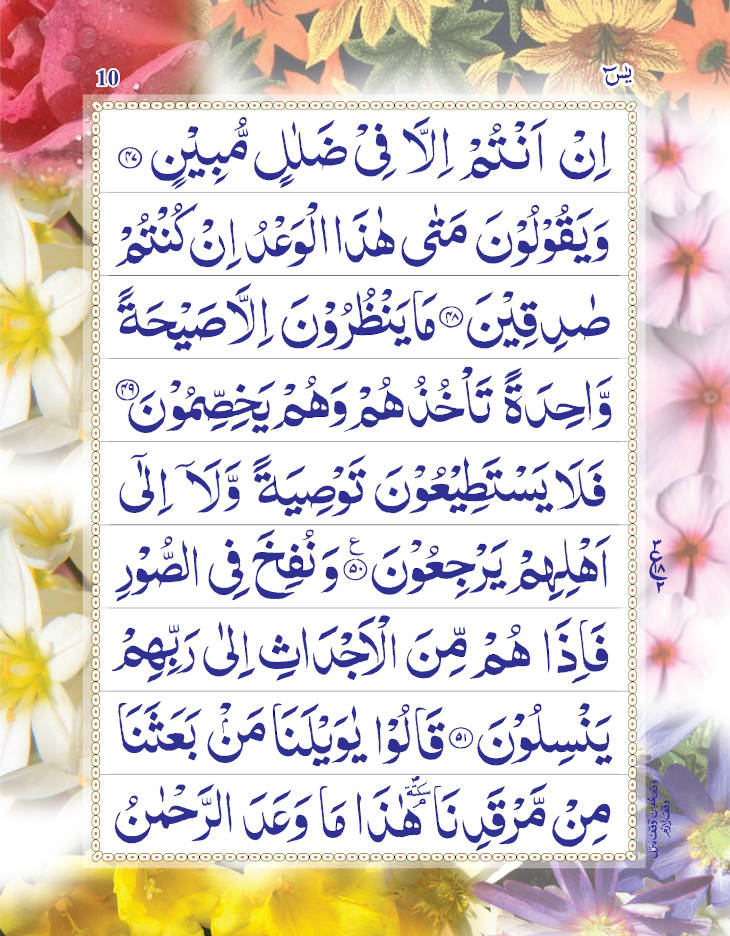 10 يٰسٓ
اِنْ اَنْتُمْ اِلَّا فِیْ ضَلٰلٍ مُّبِیْنٍ ﴿۴۷﴾
وَیَقُوْلُوْنَ مَتٰی هٰذَا الْوَعْدُ اِنْ كُنْتُمْ
صٰدِقِیْنَ ﴿۴۸﴾ مَا یَنْظُرُوْنَ اِلَّا صَیْحَةً
وَّاحِدَةً تَاْخُذُهُمْ وَهُمْ یَخِصِّمُوْنَ ﴿۴۹﴾
فَلَا یَسْتَطِیْعُوْنَ تَوْصِیَةً وَّلَاۤ اِلٰۤی
اَهْلِهِمْ یَرْجِعُوْنَ ﴿۵۰﴾ ع وَنُفِخَ فِی الصُّوْرِ
فَاِذَا هُمْ مِّنَ الْاَجْدَاثِ اِلٰی رَبِّهِمْ
یَنْسِلُوْنَ ﴿۵۱﴾ قَالُوْا یٰوَیْلَنَا مَنْۢ بَعَثَنَا
مِنْ مَّرْقَدِنَا سكتة هٰذَا مَا وَعَدَ الرَّحْمٰنُ